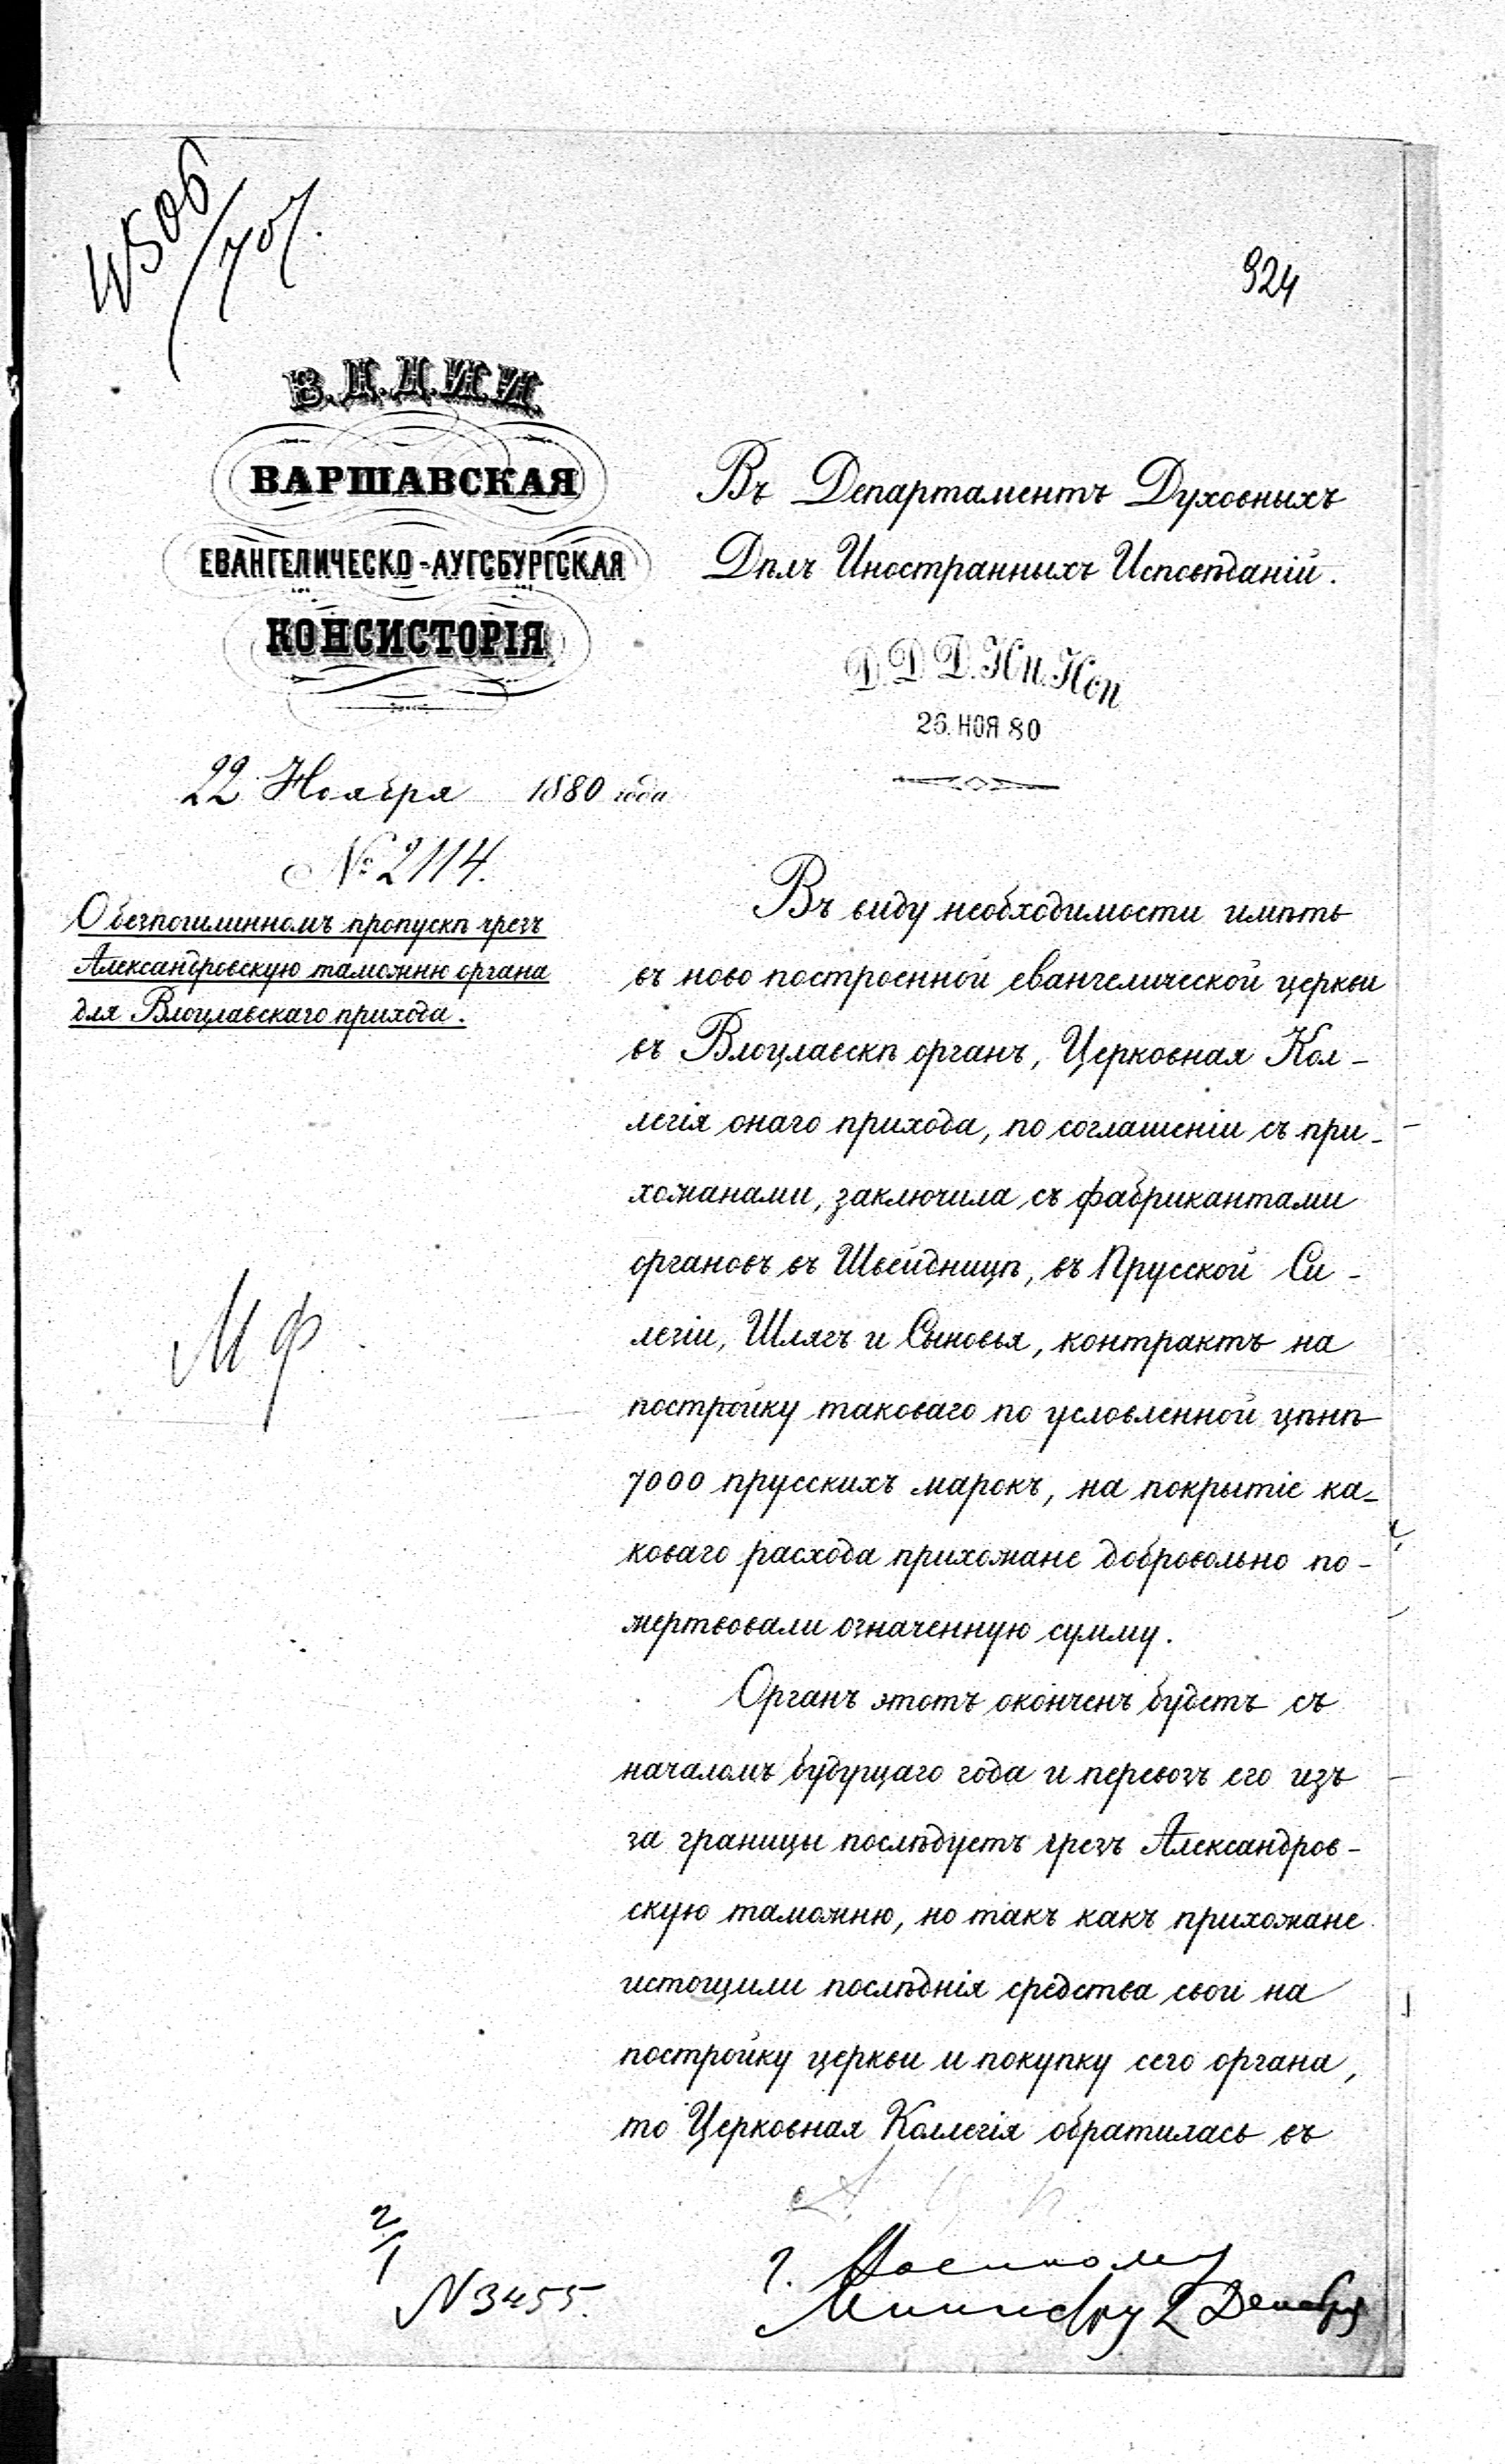 924
В.Д.Д.И.И.
ВАРШАВСКАЯ
ЕВАНГЕЛИЧЕСКО-АУГСБУРГСКАЯ
КОНСИСТОРІЯ
22 Ноября 1880 года
№ 2114.
О безпошлинномъ пропускѣ чрезъ
Александровскую таможню органа
для Влоцлавскаго прихода.
М Ф
Въ Департаментъ Духовныхъ
Дѣлъ Иностранныхъ Исповѣданій.
Д.Д.Д.Ин.Исп
26. НОЯ 80
Въ виду необходимости имѣть
въ ново построенной евангелической церкви
въ Влоцлавскѣ органъ, Церковная Кол-
легія онаго прихода, по соглашеніи съ при-
хожанами, заключила съ фабрикантами
органовъ въ Швейдницѣ, въ Прусской Си-
лезіи, Шлягъ и Сыновья, контрактъ на
постройку таковаго по условленной цѣнѣ
7000 прусскихъ марокъ, на покрытіе ка-
коваго расхода прихожане добровольно по-
жертвовали означенную сумму.
Органъ этотъ оконченъ будетъ съ
началомъ будущаго года и перевозъ его изъ
за границы послѣдуетъ чрезъ Александров-
скую таможню, но такъ какъ прихожане
истощили послѣднія средства свои на
постройку церкви и покупку сего органа,
то Церковная Коллегія обратилась въ
2/1
N 3455.
Министру 2 Декабря